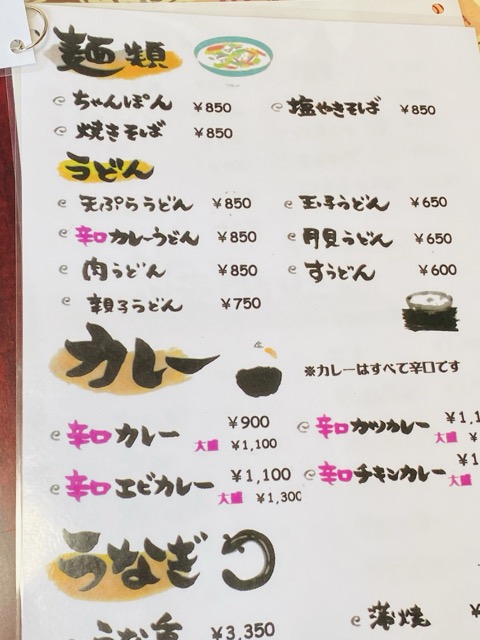 麺類
ちゃんぽん ¥850 塩やきそば ¥850
焼きそば ¥850
うどん
天ぷらうどん ¥850 玉子うどん ¥650
辛口カレーうどん ¥850 月見うどん ¥650
肉うどん ¥850 すうどん ¥600
親子うどん ¥750
カレー ※カレーはすべて辛口です
辛口カレー ¥900 辛口カツカレー
大盛 ¥1,100 大盛
辛口エビカレー ¥1,100 辛口チキンカレー
大盛 ¥1,300 大盛
うなぎ
¥3,350 蒲焼